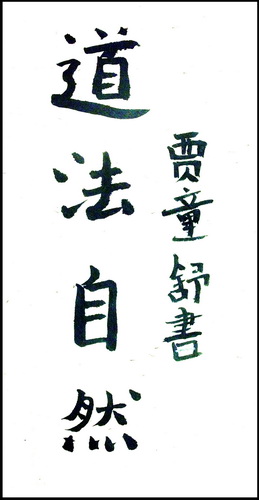 道法自然
贾童舒書